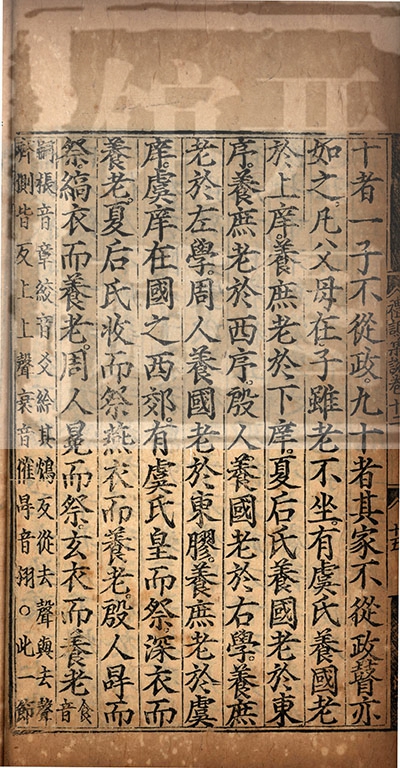 禮記集說卷十二
十五
十者一子不從政。九十者其家不從政瞽亦
如之。凡父母在子雖老不坐。有虞氏養國老
於上庠。養庶老於下庠。夏后氏養國老於東
序。養庶老於西序。殷人養國老於右學。養庶
老於左學。周人養國老於東膠。養庶老於虞
庠虞庠在國之西郊。有虞氏皇而祭深衣而
養老。夏后氏收而祭燕衣而養老。殷人冔而
祭縞衣而養老。周人冕而祭。玄衣而養老食音
嗣張音章絞音爻紟其鴆反從去聲與去聲
齊側皆反上上聲衰音催冔音○此一節